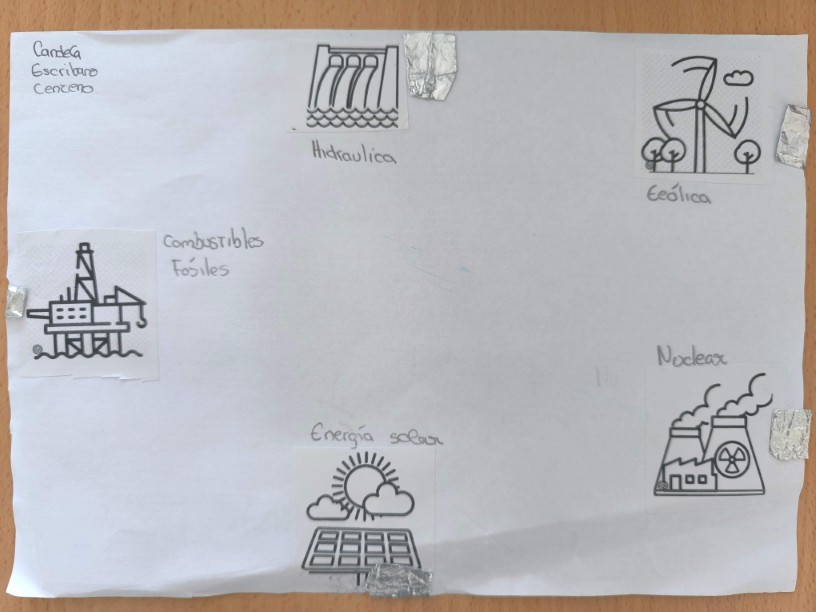 Candela
Escribano
Centeno
Hidraulica
Eeólica
Combustibles
Fósiles
Nuclear
Energía solar